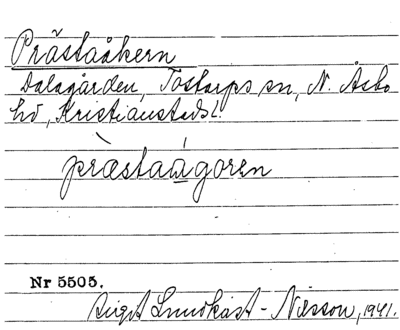 Prästaåkern
Dalagården, Tostarps sn, N. Åsbo
hd, Kristianstads l.
præ̀staågoren
Nr 5505.
Birgit Lundkvist-Nilsson, 1941.